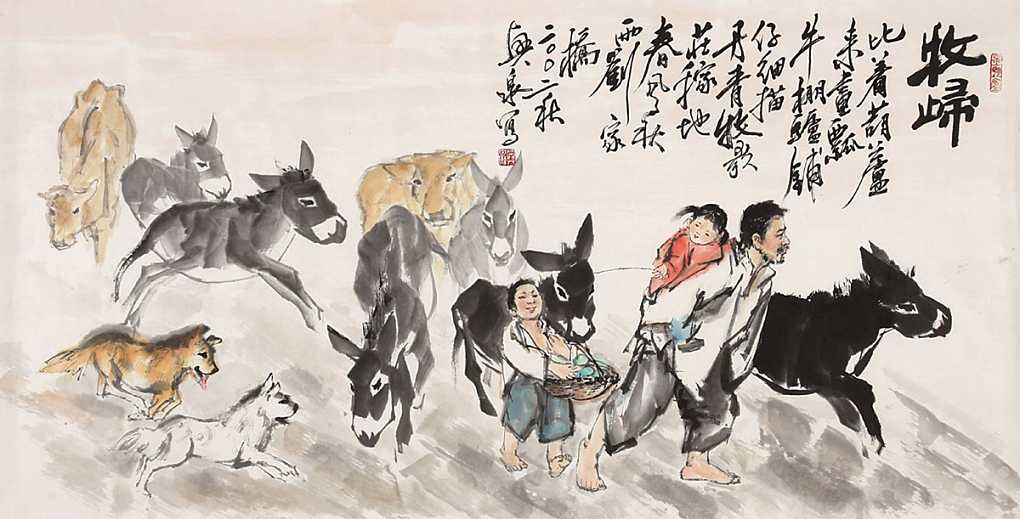 牧歸
比着葫蘆
來畫瓢
牛棚驢鋪
仔細描
丹青牧歌
莊稼地
春風秋
雨劉家
橋
二〇〇二秋
興泉寫